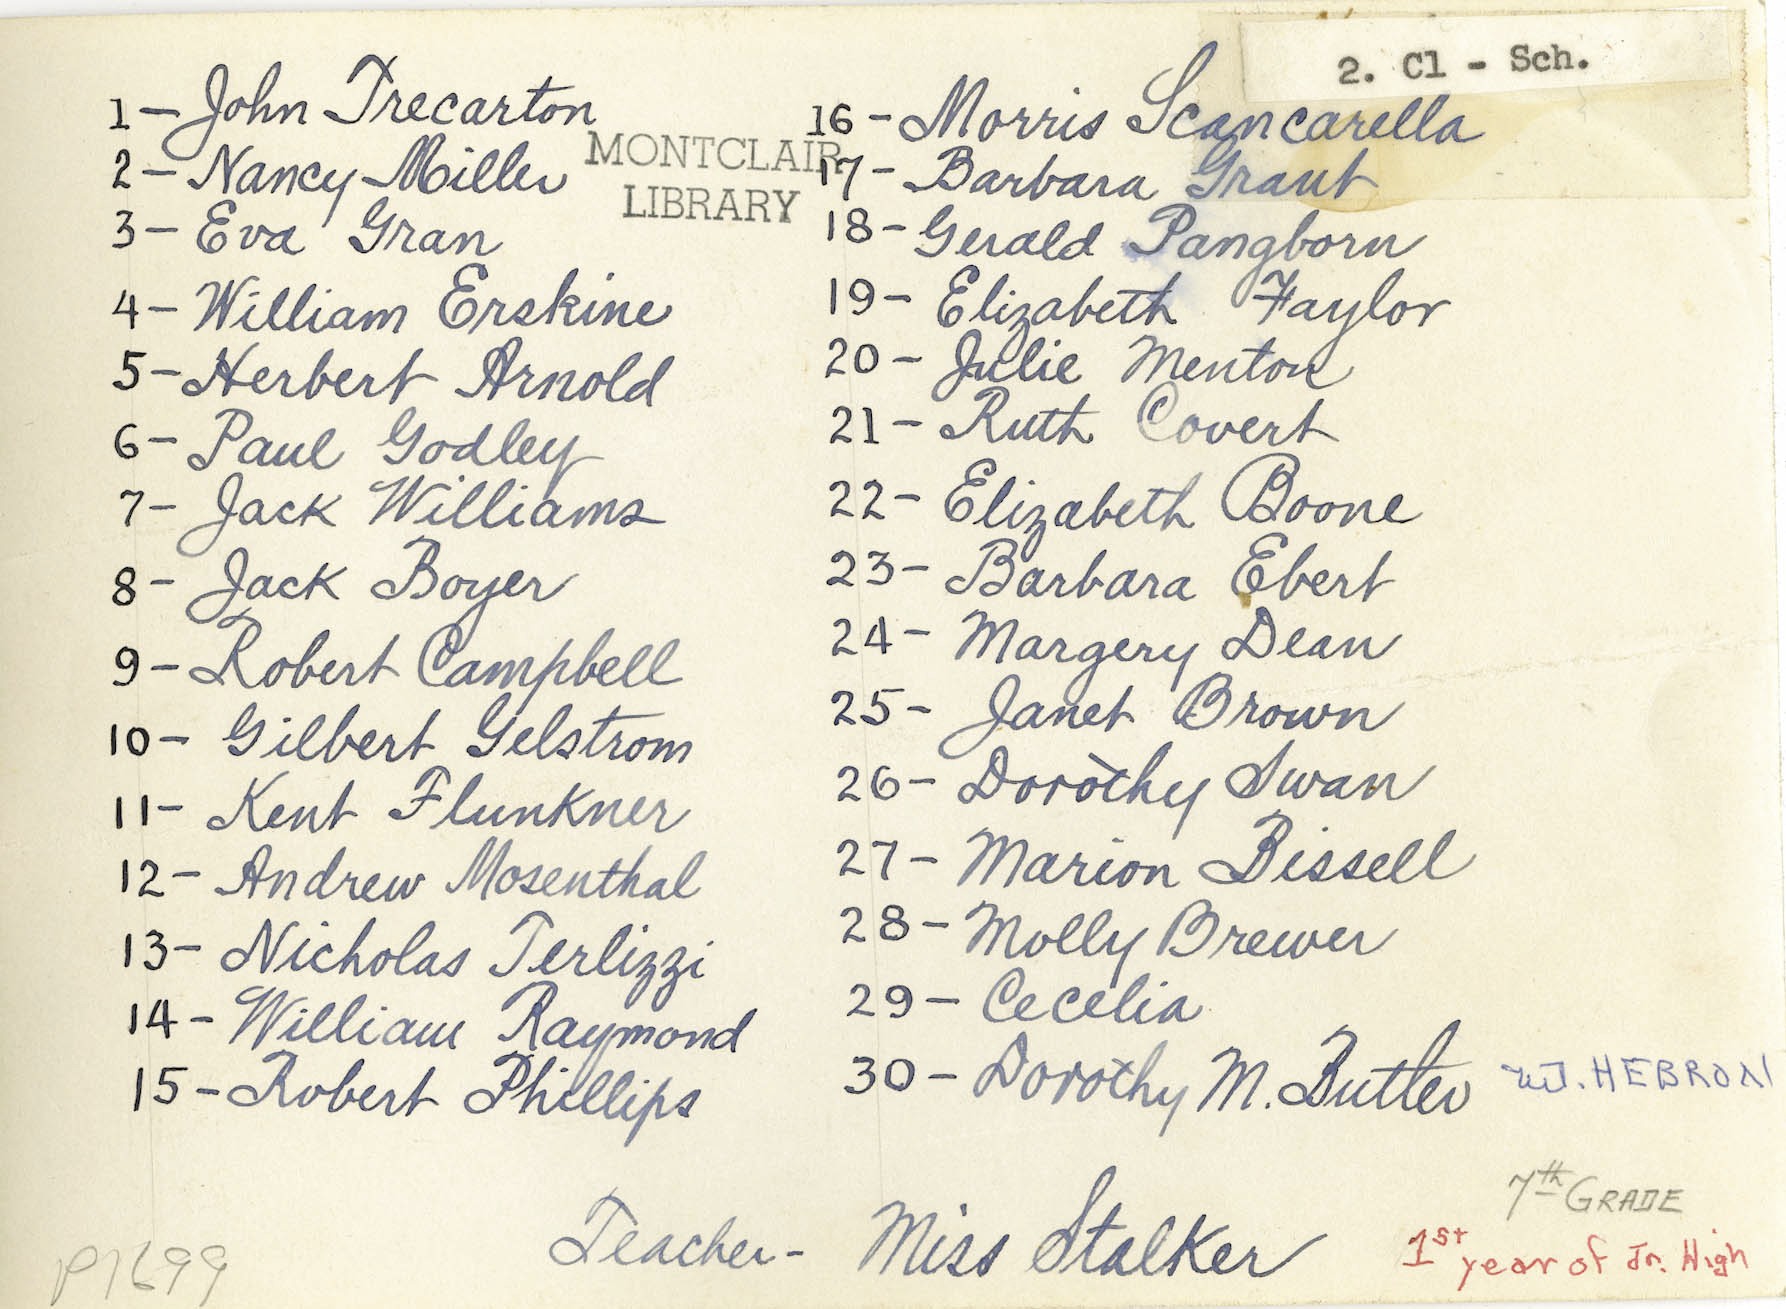 2. Cl - Sch.
MONTCLAIR
LIBRARY
1- John Trecarton
2- Nancy Miller
3- Eva Gran
4- William Erskine
5- Herbert Arnold
6- Paul Godley
7- Jack Williams
8- Jack Boyer
9- Robert Campbell
10- Gilbert Gelstrom
11- Kent Flunkner
12- Andrew Mosenthal
13- Nicholas Terlizzi
14- William Raymond
15- Robert Phillips
16- Morris Scancarella
17- Barbara Grant
18- Gerald Pangborn
19- Elizabeth Faylor
20- Julie Menton
21- Ruth Covert
22- Elizabeth Boone
23- Barbara Ebert
24- Margery Dean
25- Janet Brown
26- Dorothy Swan
27- Marion Bissell
28- Molly Brewer
29- Cecelia
30- Dorothy M. Butler
HEBRON
7th GRADE
Teacher- Miss Stalker
1st year of Jr. High
P1699